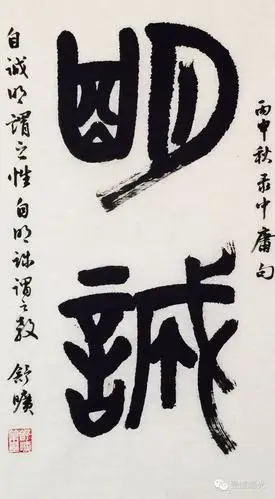 丙申秋录中庸句
明誠
自诚明谓之性自明诚谓之教 舒曠